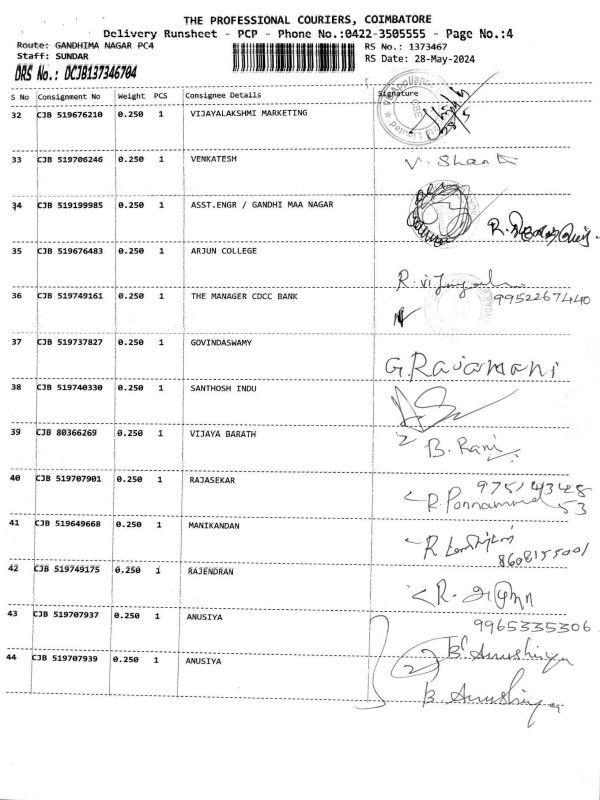 THE PROFESSIONAL COURIERS, COIMBATORE
Delivery Runsheet - PCP - Phone No.:0422-3505555 - Page No.:4
Route: GANDHIMA NAGAR PC4 RS No.: 1373467
Staff: SUNDAR RS Date: 28-May-2024
DRS No.: DCJB137346704
S No Consignment No Weight PCS Consignee Details Signature
32 CJB 519676210 0.250 1 VIJAYALAKSHMI MARKETING
33 CJB 519706246 0.250 1 VENKATESH V. Shank
34 CJB 519199985 0.250 1 ASST.ENGR / GANDHI MAA NAGAR R.
35 CJB 519676483 0.250 1 ARJUN COLLEGE
R.
36 CJB 519749161 0.250 1 THE MANAGER CDCC BANK 9952267440
37 CJB 519737827 0.250 1 GOVINDASWAMY
G.Rajamani
38 CJB 519740330 0.250 1 SANTHOSH INDU
39 CJB 80366269 0.250 1 VIJAYA BARATH B. Rani
40 CJB 519707901 0.250 1 RAJASEKAR 9751414328
R. 53
41 CJB 519649668 0.250 1 MANIKANDAN R
8608155001
42 CJB 519749175 0.250 1 RAJENDRAN R.
43 CJB 519707937 0.250 1 ANUSIYA 9965335306
B. Anushiya
44 CJB 519707939 0.250 1 ANUSIYA 2
B. Anushiya